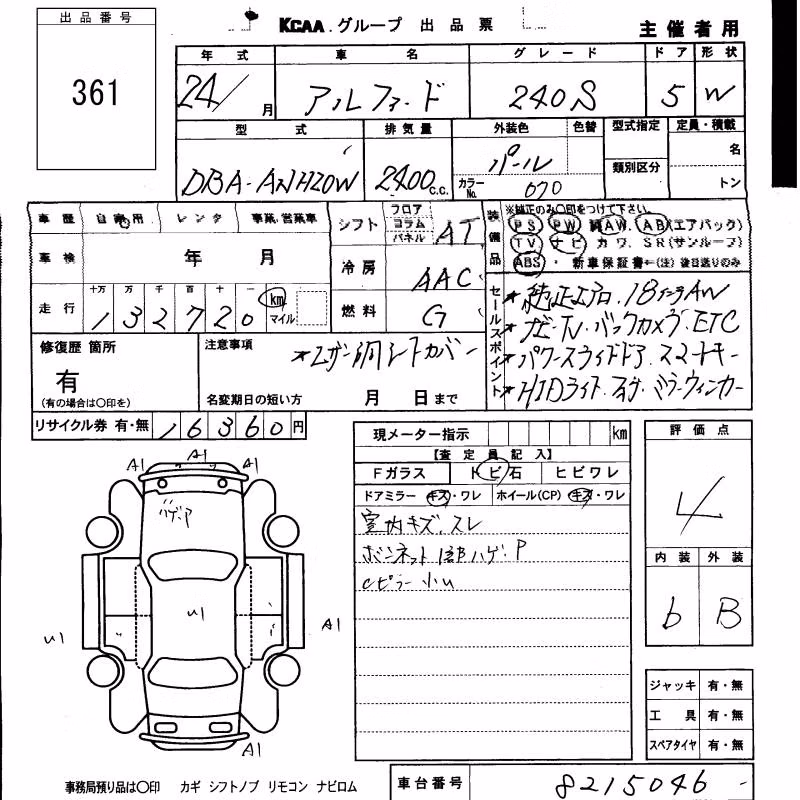 出品番号
361
KCAA.グループ 出品票
主催者用
年式 車名 グレード ドア 形状
24/ 月 アルファード 240S 5 W
型式 排気量 外装色 色替 型式指定 定員・積載
DBA-ANH20W 2400 c.c. パール 名
カラーNo. 070 類別区分 トン
車歴 自家用 レンタ 事業・営業車
シフト フロア コラム パネル AT
車検 年 月
冷房 AAC
走行 十万 万 千 百 十 一 km マイル
1 3 2 7 2 0
燃料 G
装備品 ※純正のみ○印をつけて下さい。
PS PW AW AB(エアバック)
TV ナビ カワ SR(サンルーフ)
ABS ・ 新車保証書←(注)後日送りのみ
セールスポイント
★純正エアロ.18インチAW
★ナビ・TV.バックカメラ.ETC
★パワースライドドア.スマートキー
★HIDライト.フォグ.ミラーウィンカー
修復歴 箇所
有
(有の場合は○印を)
注意事項
★レザー調シートカバー
名変期日の短い方 月 日まで
リサイクル券 有・無 16360円
現メーター指示 km
【査定員記入】
Fガラス トビ石 ヒビワレ
ドアミラー キズ・ワレ ホイール(CP) キズ・ワレ
室内キズ.スレ
ボンネット 1部ハゲ.P
Cピラー小U
評価点
4
内装 外装
b B
A1 A1 A1
ハゲ.P
U1
U1
A1
A1
ジャッキ 有・無
工具 有・無
スペアタイヤ 有・無
事務局預り品は○印 カギ シフトノブ リモコン ナビロム
車台番号 8215046